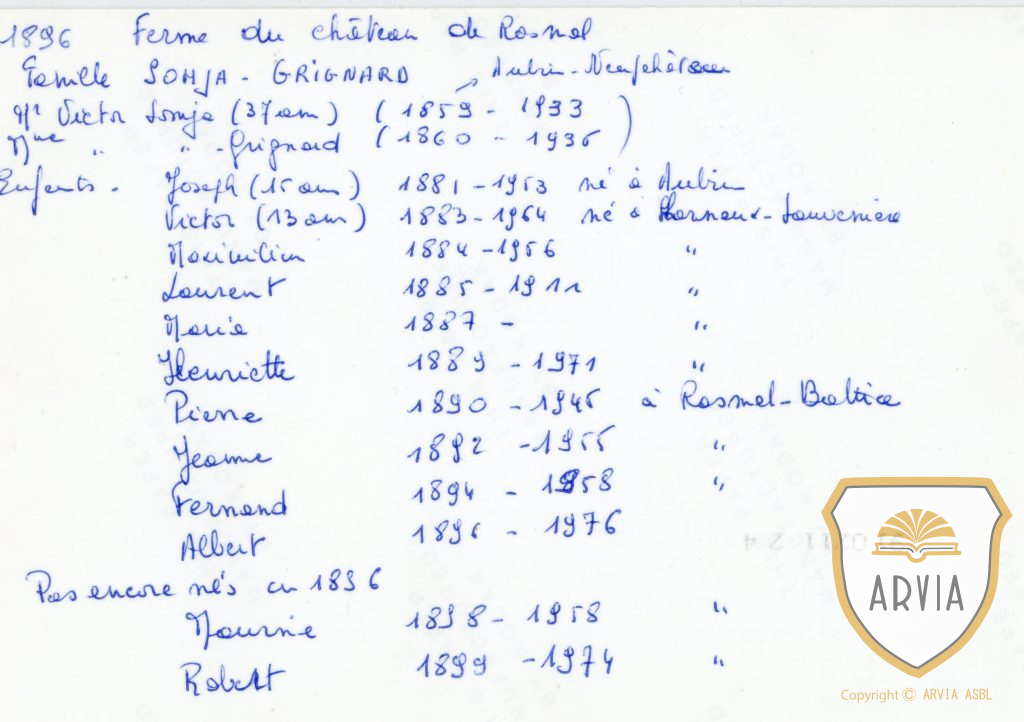 1896 Ferme du château de Rosmel
Famille SOMJA - GRIGNARD Aubin-Neufchâteau
Mr Victor Somja (37 ans) (1859 - 1933
Mme " " - Grignard (1860 - 1936 )
Enfants - Joseph (15 ans) 1881 - 1953 né à Aubin
Victor (13 ans) 1883 - 1964 né à Louveniére
Maximilien 1884 - 1956 "
Laurent 1885 - 1911 "
Maria 1887 - "
Henriette 1889 - 1971 "
Pierre 1890 - 1945 à Rosmel-Battice
Jeanne 1892 - 1955 "
Fernand 1894 - 1958 "
Albert 1896 - 1976
Pas encore nés en 1896
Maurice 1898 - 1958 "
Robert 1899 - 1974 "
ARVIA
Copyright © ARVIA ASBL